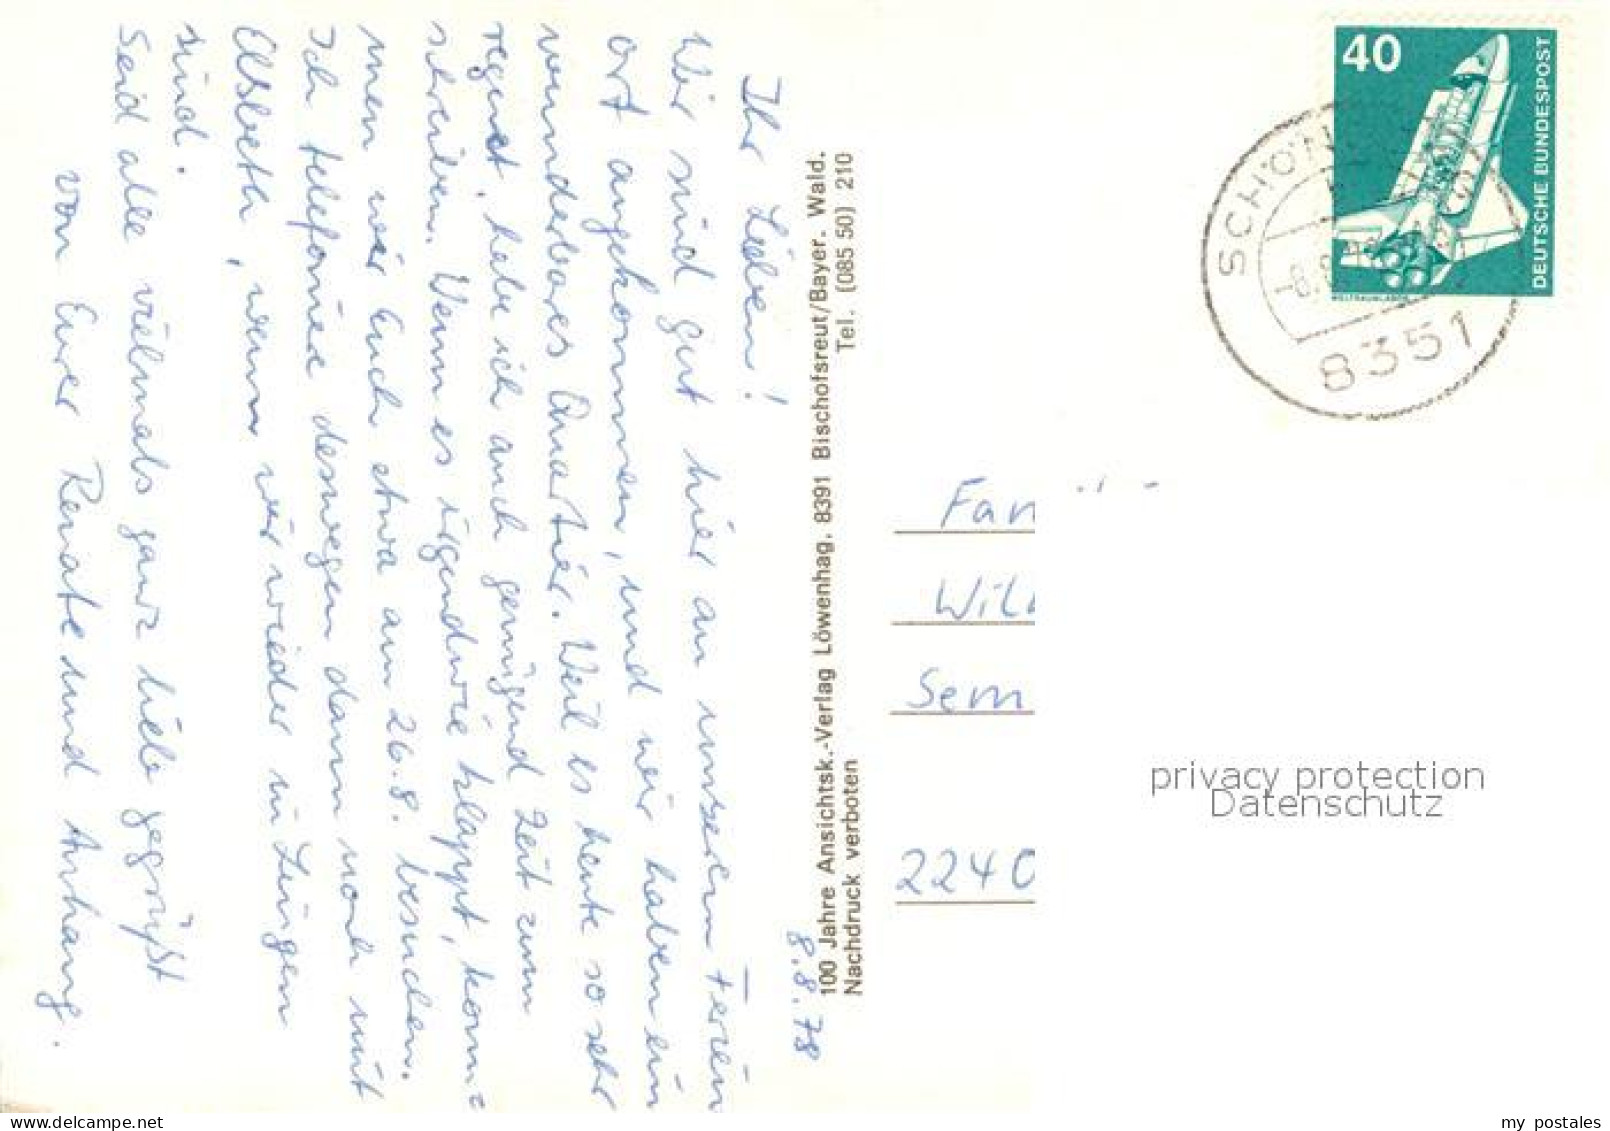 8.8.78
Ihr Lieben!
Wir sind gut hier an unserem Ferien
ort angekommen, und wir haben ein
wunderbares Quartier. Weil es heute so sehr
regnet, habe ich auch genügend Zeit zum
schreiben. Wenn es irgendwie klappt, kom=
men wir Euch etwa am 26.8. besuchen.
Ich telefoniere deswegen dann noch mit
Elsbeth, wenn wir wieder in
sind.
Seid alle vielmals ganz lieb gegrüßt
von Eurer Renate und Anhang.
100 Jahre Ansichtsk.-Verlag Löwenhag. 8391 Bischofsreut/Bayer. Wald.
Nachdruck verboten Tel. (085 50) 210
40
DEUTSCHE BUNDESPOST
WELTRAUMLABOR
SCHÖN
8351
Fam
Wil
Sem
2240
privacy protection
Datenschutz
delcampe.net
my_postales